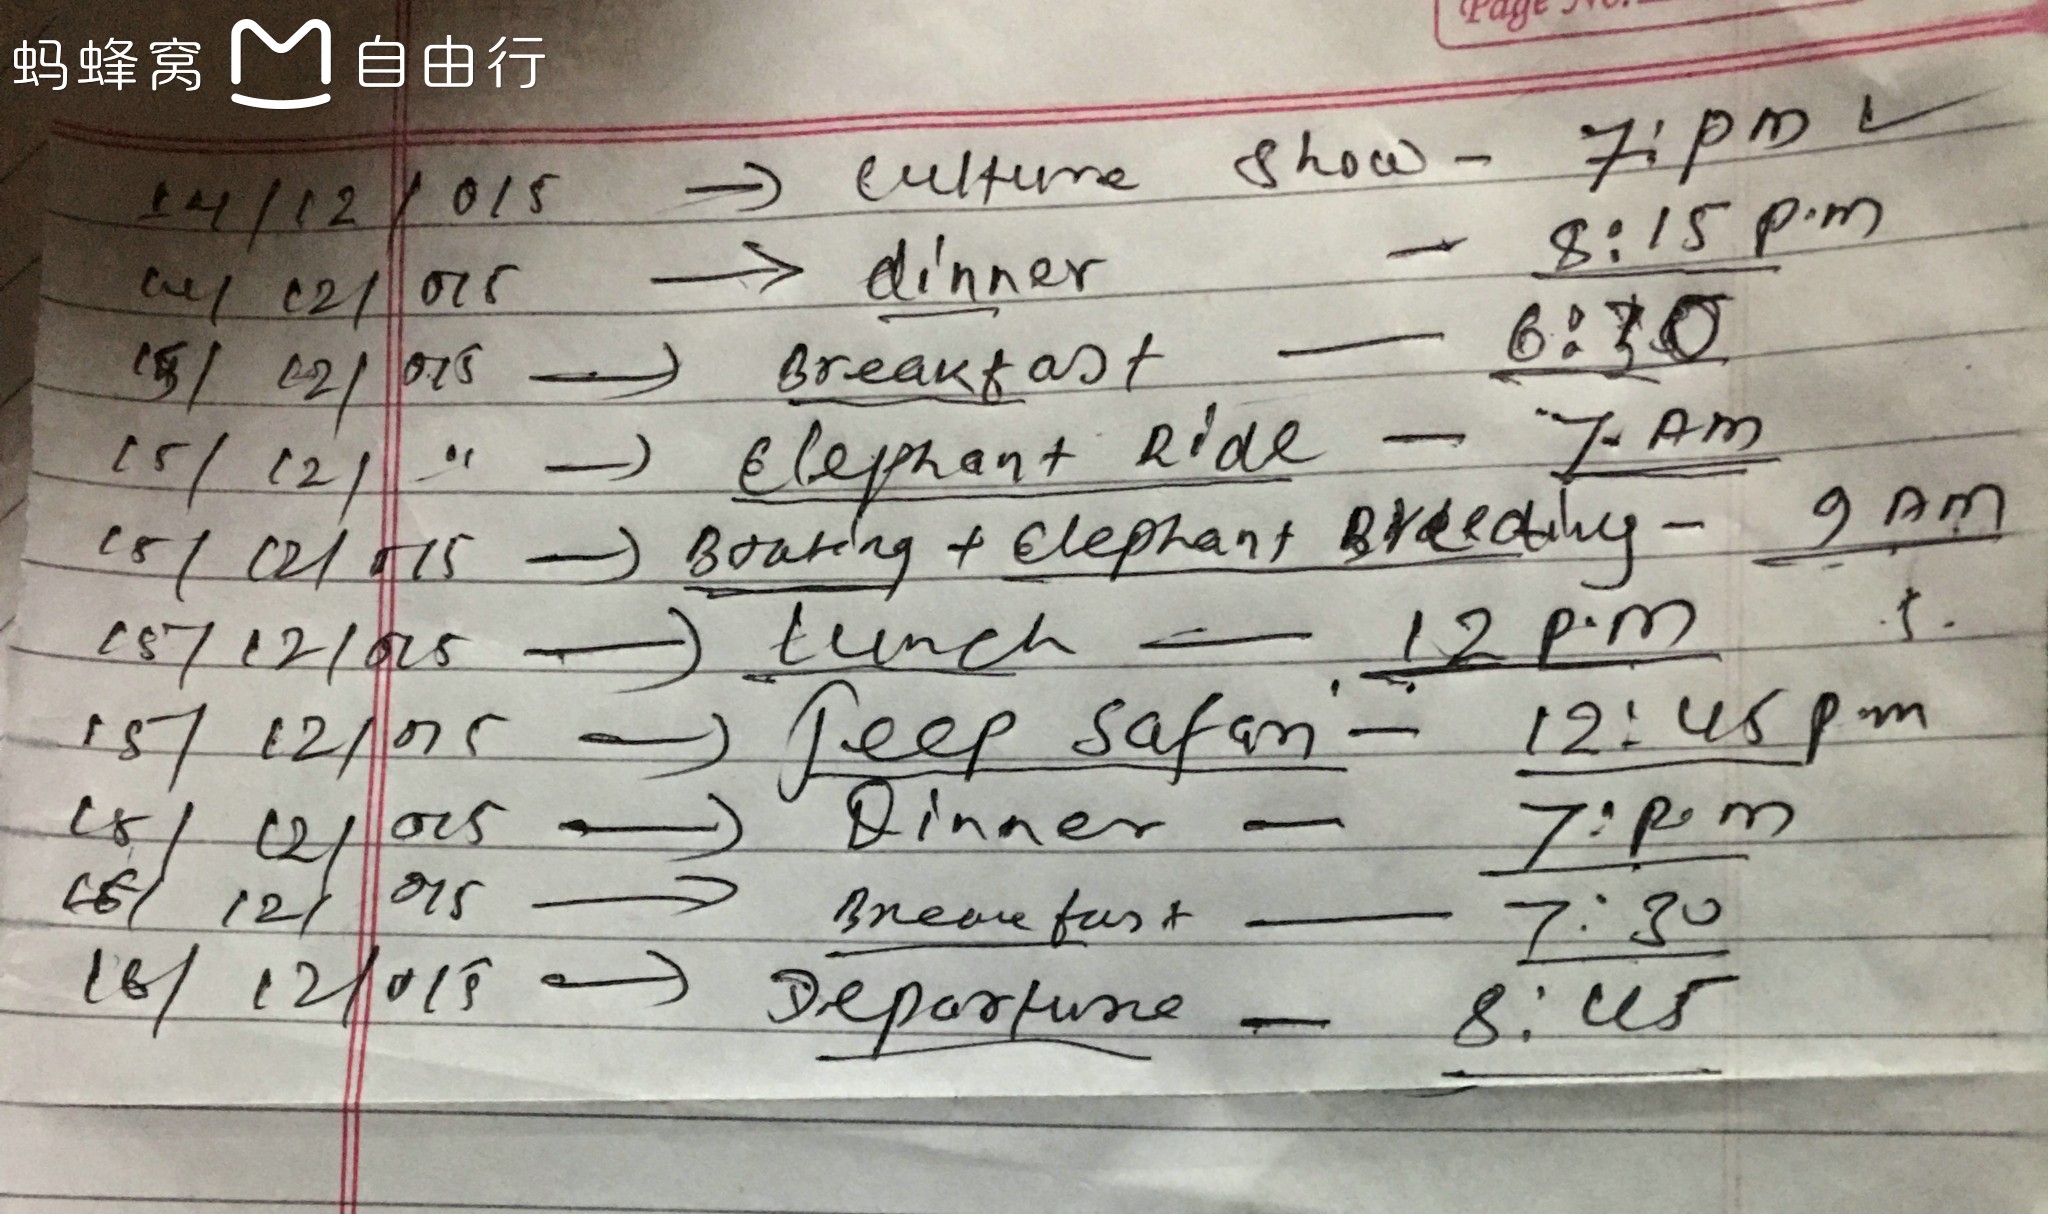 蚂蜂窝 自由行
Page No.
14/12/015 → Culture Show - 7: pm ✓
14/12/015 → dinner - 8:15 p.m
15/12/015 → Breakfast - 6:30
15/12/ " → Elephant Ride - 7 AM
15/12/015 → Boating + Elephant Breeding - 9 AM
15/12/015 → Lunch - 12 p.m
15/12/015 → Jeep Safari - 12:45 p.m
15/12/015 → Dinner - 7: p.m
16/12/015 → Breakfast - 7:30
16/12/015 → Departure - 8:45